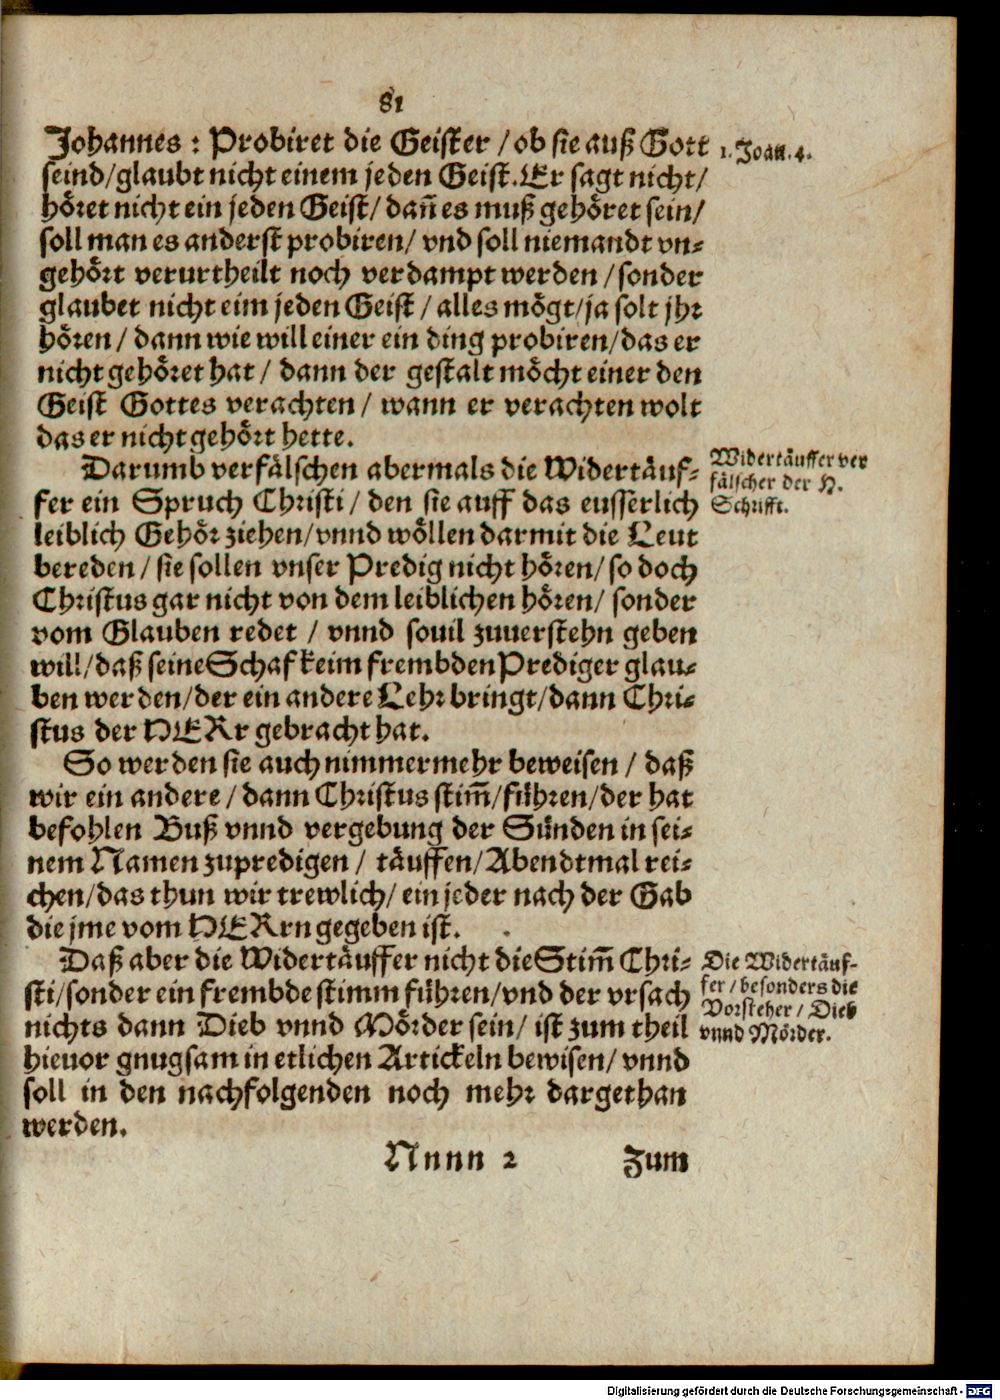 81
Johannes : Probiret die Geister / ob sie auß Gott
1. Joan. 4.
seind/glaubt nicht einem jeden Geist. Er sagt nicht/
höret nicht ein jeden Geist/ dañ es muß gehöret sein/
soll man es anderst probiren/ vnd soll niemandt vn-
gehört verurtheilt noch verdampt werden / sonder
glaubet nicht eim jeden Geist / alles mögt/ja solt jhr
hören / dann wie will einer ein ding probiren/das er
nicht gehöret hat / dann der gestalt möcht einer den
Geist Gottes verachten / wann er verachten wolt
das er nicht gehört hette.
Darumb verfälschen abermals die Widertäuf-
fer ein Spruch Christi / den sie auff das eusserlich
leiblich Gehör ziehen/vnnd wöllen darmit die Leut
bereden / sie sollen vnser Predig nicht hören/ so doch
Christus gar nicht von dem leiblichen hören/ sonder
vom Glauben redet / vnnd souil zuuerstehn geben
will/daß seine Schaf keim frembden Prediger glau-
ben werden/der ein andere Lehr bringt/dann Chri-
stus der HERr gebracht hat.
Widertäuffer ver
fälscher der H.
Schrifft.
So werden sie auch nimmermehr beweisen / daß
wir ein andere / dann Christus stim̃/führen/der hat
befohlen Buß vnnd vergebung der Sünden in sei-
nem Namen zupredigen / täuffen/Abendtmal rei-
chen/das thun wir trewlich/ ein jeder nach der Gab
die jme vom HERrn gegeben ist.
Daß aber die Widertäuffer nicht die Stim̃ Chri-
sti/sonder ein frembde stimm führen/vnd der vrsach
nichts dann Dieb vnnd Mörder sein/ ist zum theil
hieuor gnugsam in etlichen Artickeln bewisen/ vnnd
soll in den nachfolgenden noch mehr dargethan
werden.
Die Widertäuf-
fer / besonders die
Vorsteher / Dieb
vnnd Mörder.
Nnnn 2 Zum
Digitalisierung gefördert durch die Deutsche Forschungsgemeinschaft - DFG